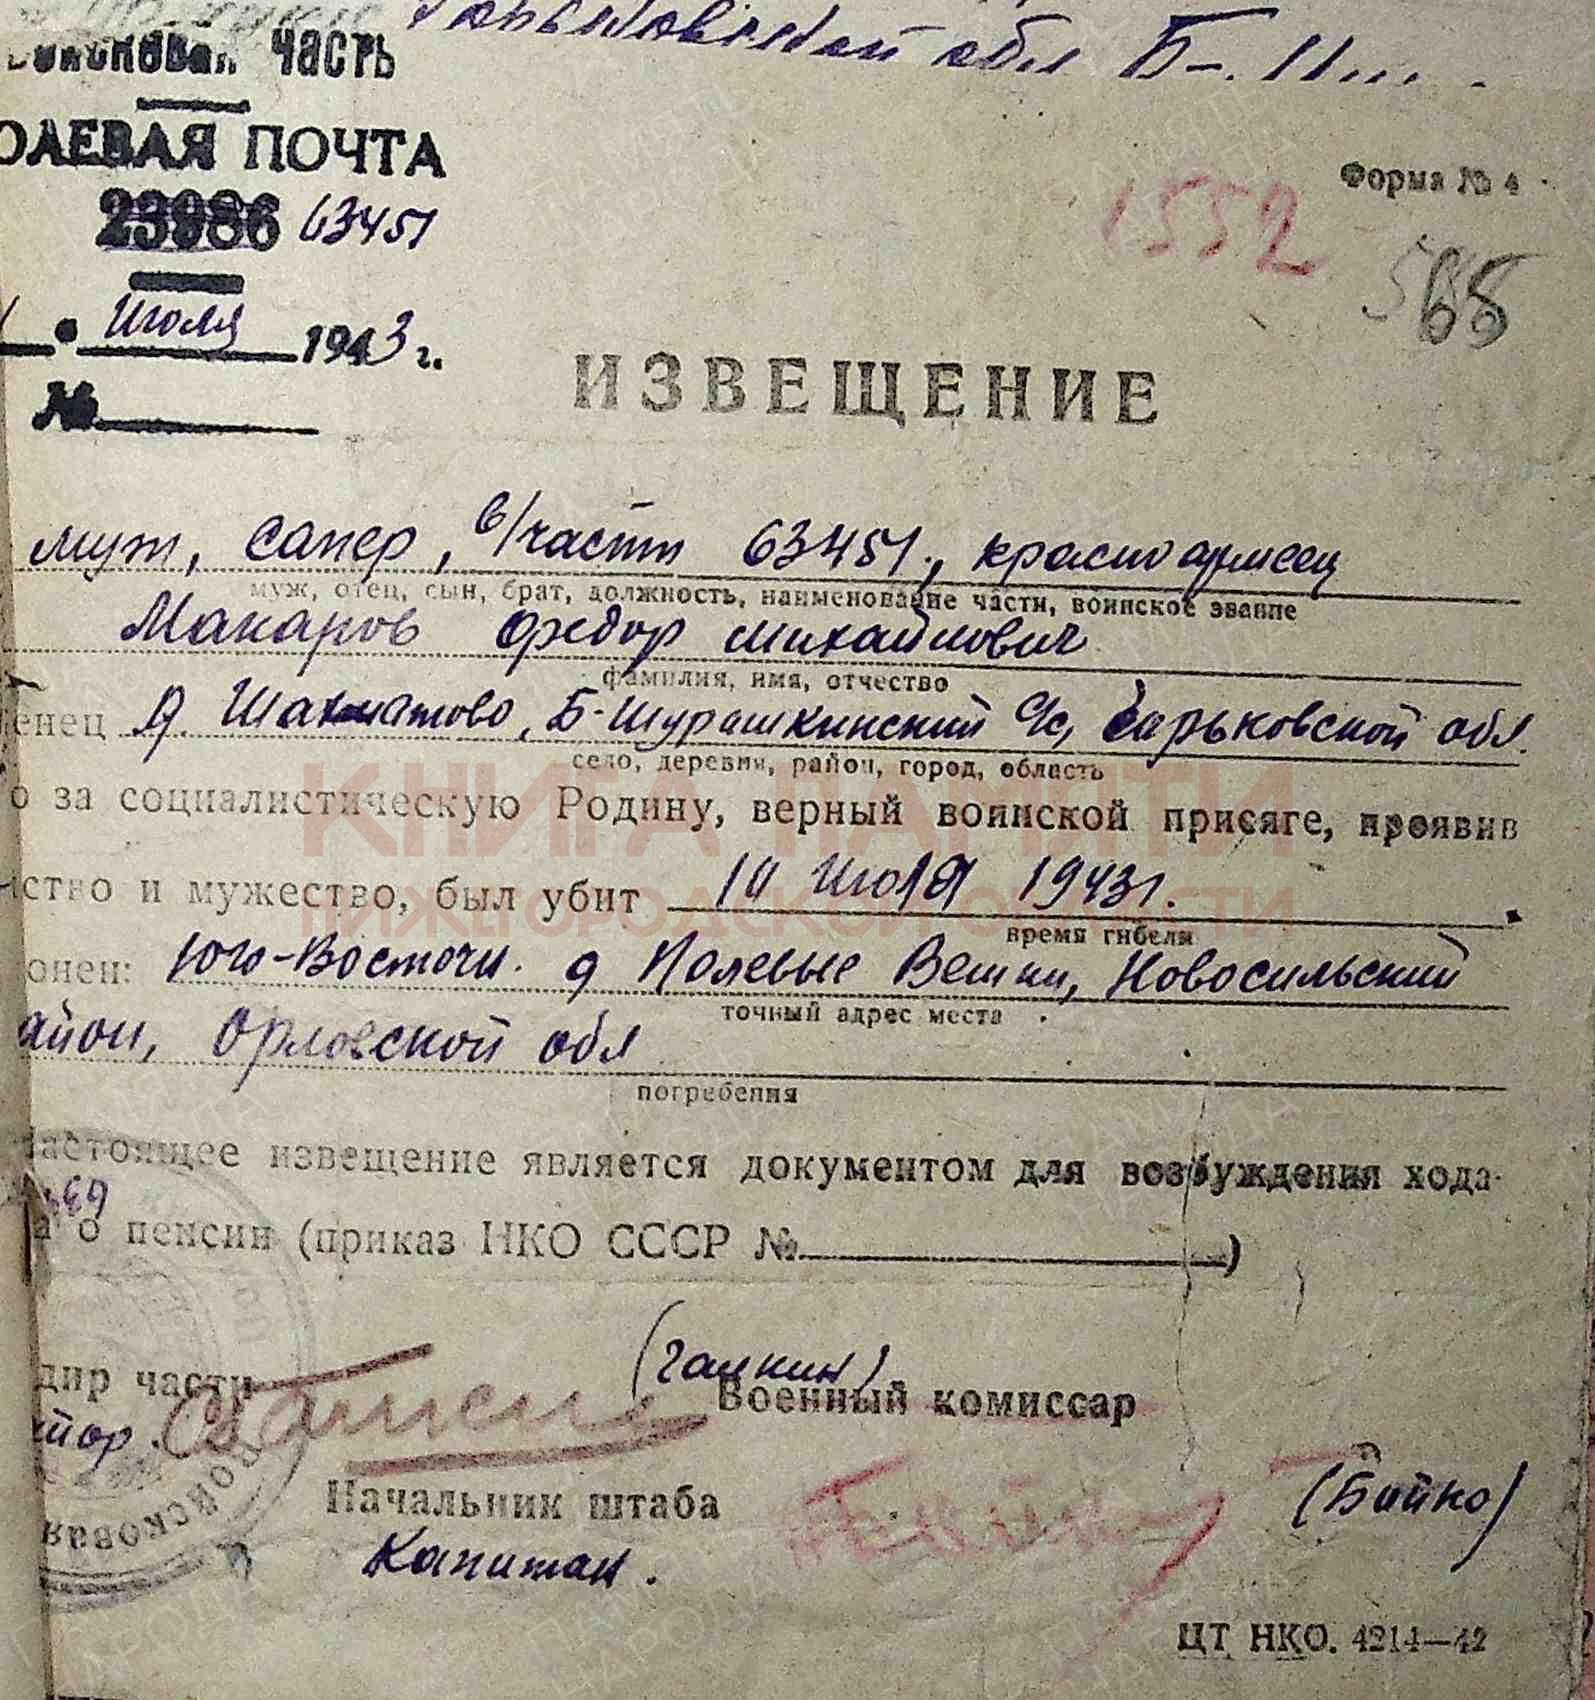 Горьковской обл Б-
Войсковая часть
ОЛЕВАЯ ПОЧТА
23986 63451
Июля 1943 г.
№
Форма № 4
1552
ИЗВЕЩЕНИЕ
муж, сапер, в/части 63451, красноармеец
муж, отец, сын, брат, должность, наименование части, воинское звание
Макаров Федор Михайлович
фамилия, имя, отчество
енец д. Шахматово, Б-Мурашкинский р/с, Горьковской обл.
село, деревня, район, город, область
о за социалистическую Родину, верный воинской присяге, проявив
йство и мужество, был убит 14 Июля 1943 г.
время гибели
онен: Юго-Восточн. д Полевые Вешки, Новосильский
точный адрес места
айон, Орловской обл
погребения
Настоящее извещение является документом для возбуждения хода-
а о пенсии (приказ НКО СССР № )
дир части (Галкин) Военный комиссар
йор
Начальник штаба (Бойко)
Капитан.
Войсковая
ЦТ НКО. 4214—42
КНИГА ПАМЯТИ
НИЖЕГОРОДСКОЙ ОБЛАСТИ